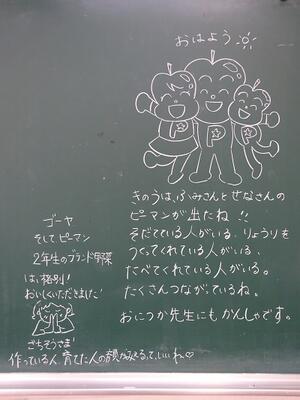 おはよう
P
P
P
きのうは、ふみさんとせなさんの
ピーマンが出たね!!
そだてている人がいる。りょうりを
つくってくれている人がいる。
たべてくれている人がいる。
たくさんつながっているね。
おにつか先生にも かんしゃです。
ゴーヤ
そして ピーマン
2年生のブランド野菜
は、格別!
おいしくいただきました!
ごちそうさま!
作っている人、育てた人の顔が見えるって、いいね♡